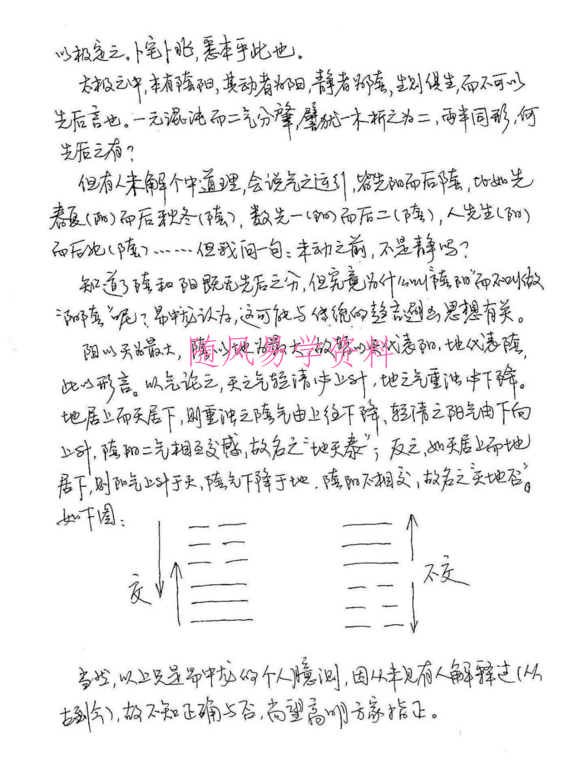 以极定之。卜宅卜兆,悉本乎此也。
太极之中,本有阴阳,其动者为阳,静者为阴,生则俱生,而不可以
先后言也。一元混沌而二气分肇,譬犹一木析之为二,两半同形,何
先后之有?
但有人未解个中道理,会说气之运引,皆先阳而后阴,比如先
春夏(阳)而后秋冬(阴),数先一(阳)而后二(阴),人先生(阳)
而后死(阴)……但我问一句:未动之前,不是静吗?
知道了阴和阳既无先后之分,但究竟为什么叫“阴阳”而不叫做
“阳阴”呢?吊中龙认为,这可能与传统的趋吉避凶思想有关。
阳以天为最大,阴以地为最大,故常以天代表阳,地代表阴,
此以形言。以气论之,天之气轻清中上升,地之气重浊中下降。
地居上而天居下,则重浊之阴气由上往下降,轻清之阳气由下向
上升,阴阳二气相互交感,故名之“地天泰”;反之,如天居上而地
居下,则阳气上升于天,阴气下降于地,阴阳不相交,故名之“天地否”。
如下图:
交
不交
当然,以上只是吊中龙的个人臆测,因从未见有人解释过(从
古到今),故不知正确与否,尚望高明方家指正。
随风易学资料